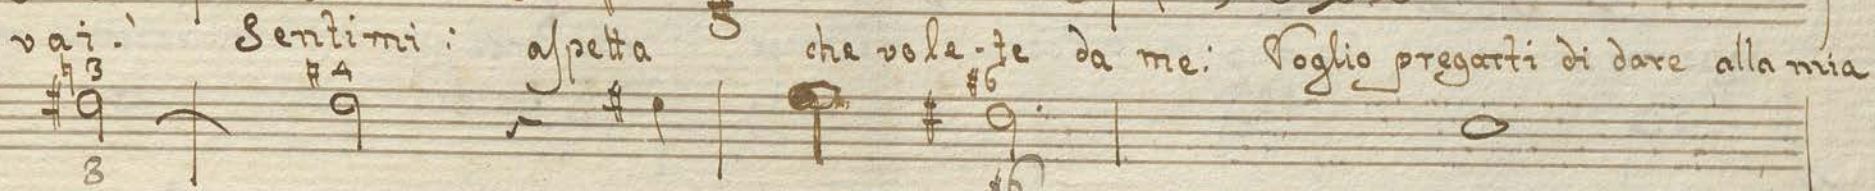 vai. Sentimi: aspetta che vole-te da me: Voglio pregarti di dare alla mia
♮3 ♮4 #6
3 #6